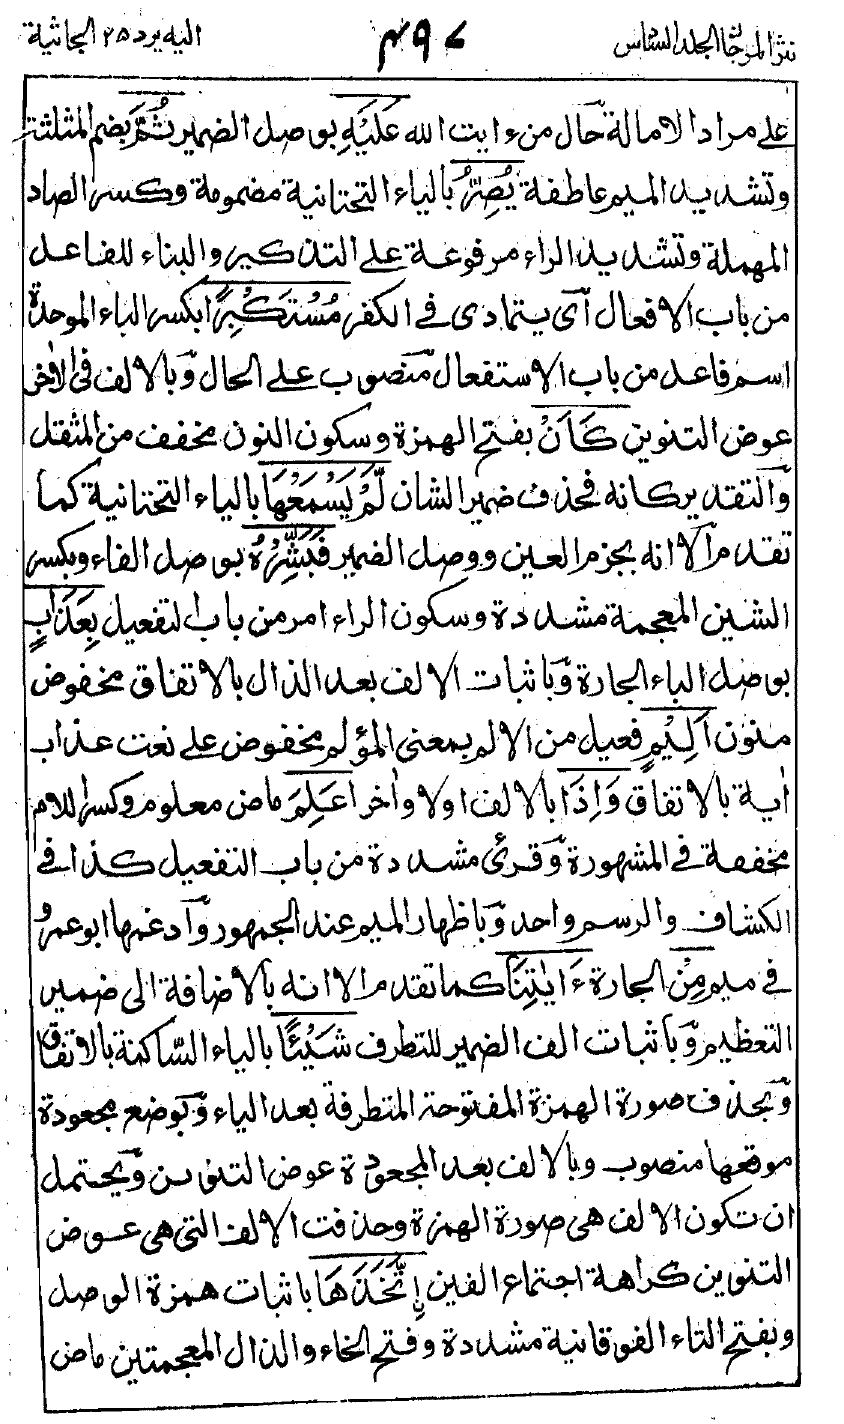 نثر المرجان الجلد السادس
٤٩٧
اليه يرد ٢٥ الجاثية
على مراد الامالة حال من ءايت الله عَلَيْهِ بوصل الضمير ثُمَّ بضم المثلثة
وتشديد الميم عاطفة يُصِرُّ بالياء التحتانية مضمومة وكسر الصاد
المهملة وتشديد الراء مرفوعة على التذكير والبناء للفاعل
من باب الافعال أى يتمادى فى الكفر مُسْتَكْبِرًا بكسر الباء الموحدة
اسم فاعل من باب الاستفعال منصوب على الحال وبالالف فى الاخر
عوض التنوين كَاَنْ بفتح الهمزة وسكون النون مخفف من المثقل
والتقدير كانه فحذف ضمير الشان لَّمْ يَسْمَعْهَا بالياء التحتانية كما
تقدم الا انه بجزم العين ووصل الضمير فَبَشِّرْهُ بوصل الفاء وبكسر
الشين المعجمة مشددة وسكون الراء امر من باب التفعيل بِعَذَابٍ
بوصل الباء الجارة وباثبات الالف بعد الذال بالاتفاق مخفوض
منون اَلِيْمٍ فعيل من الالم بمعنى المؤلم مخفوض على نعت عذاب
اية بالاتفاق وَاِذَا بالالف اولا واخرا عَلِمَ ماض معلوم وكسر اللام
مخففة فى المشهورة وقرئ مشددة من باب التفعيل كذا فى
الكشاف والرسم واحد وباظهار الميم عند الجمهور وادغمها ابو عمرو
فى ميم مِنْ الجارة ءَايٰتِنَا كما تقدم الا انه بالاضافة الى ضمير
التعظيم وباثبات الف الضمير للتطرف شَيْـًٔا بالياء الساكنة بالاتفاق
وبحذف صورة الهمزة المفتوحة المتطرفة بعد الياء وبوضع مجعودة
موقعها منصوب وبالالف بعد المجعودة عوض التنوين ويحتمل
ان تكون الالف هى صورة الهمزة وحذفت الالف التى هى عوض
التنوين كراهة اجتماع الفين اِتَّخَذَهَا باثبات همزة الوصل
وبفتح التاء الفوقانية مشددة وفتح الخاء والذال المعجمتين ماض